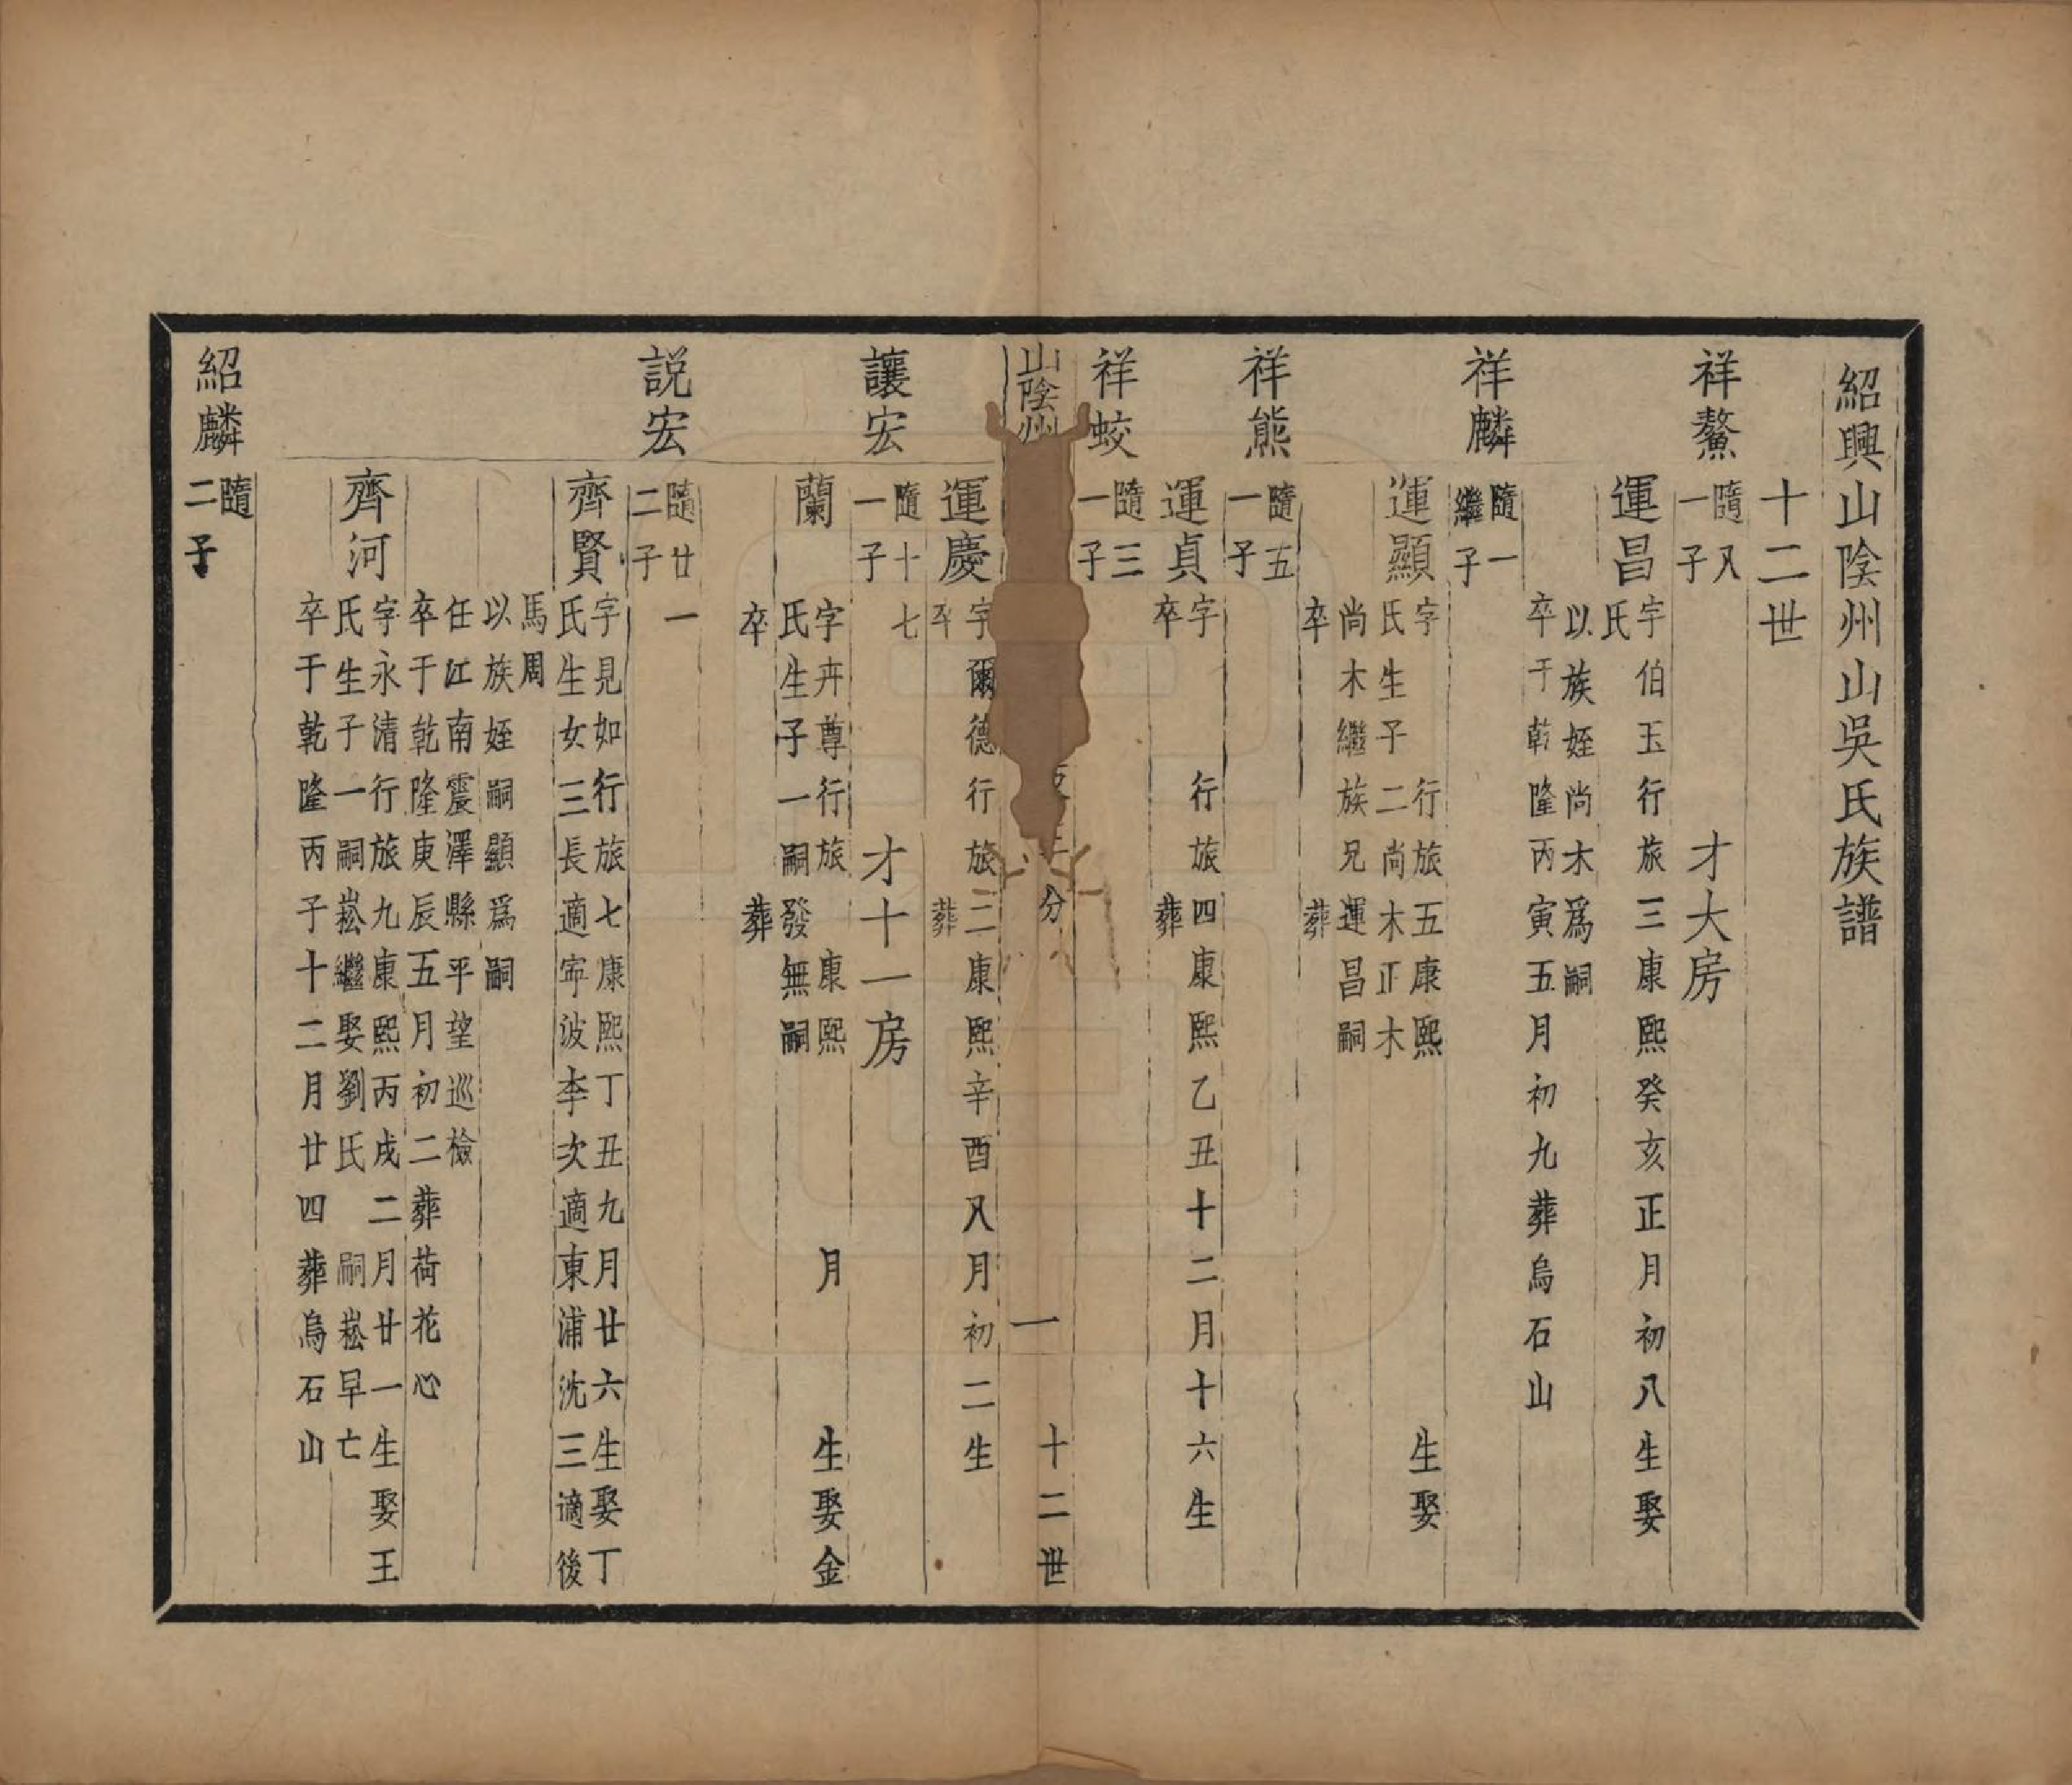 紹興山陰州山吳氏族譜
十二世
祥鰲
隨八
一子
才大房
運昌
字伯玉行旅三康熙癸亥正月初八生娶
氏
以族姪尚木爲嗣
卒于乾隆丙寅五月初九葬烏石山
祥麟
隨一
繼子
運顯
字 行旅五康熙 生娶
氏生子二尚木正木
尚木繼族兄運昌嗣
卒 葬
祥熊
隨五
一子
運貞
字 行旅四康熙乙丑十二月十六生
卒 葬
祥蛟
隨三
一子
山陰州 分 一 十二世
運慶
字爾德行旅二康熙辛酉八月初二生
卒 葬
讓宏
隨十七
一子
才十一房
蘭
字卉尊行旅 康熙 月 生娶金
氏生子一嗣發無嗣
卒 葬
説宏
隨廿一
二子
齊賢
字見如行旅七康熙丁丑九月廿六生娶丁
氏生女三長適寧波李次適東浦沈三適後
馬周
以族姪嗣顯爲嗣
任江南震澤縣平望巡檢
卒于乾隆庚辰五月初二葬荷花心
齊河
字永清行旅九康熙丙戌二月廿一生娶王
氏生子一嗣崧繼娶劉氏 嗣崧早亡
卒于乾隆丙子十二月廿四葬烏石山
紹麟
隨
二子